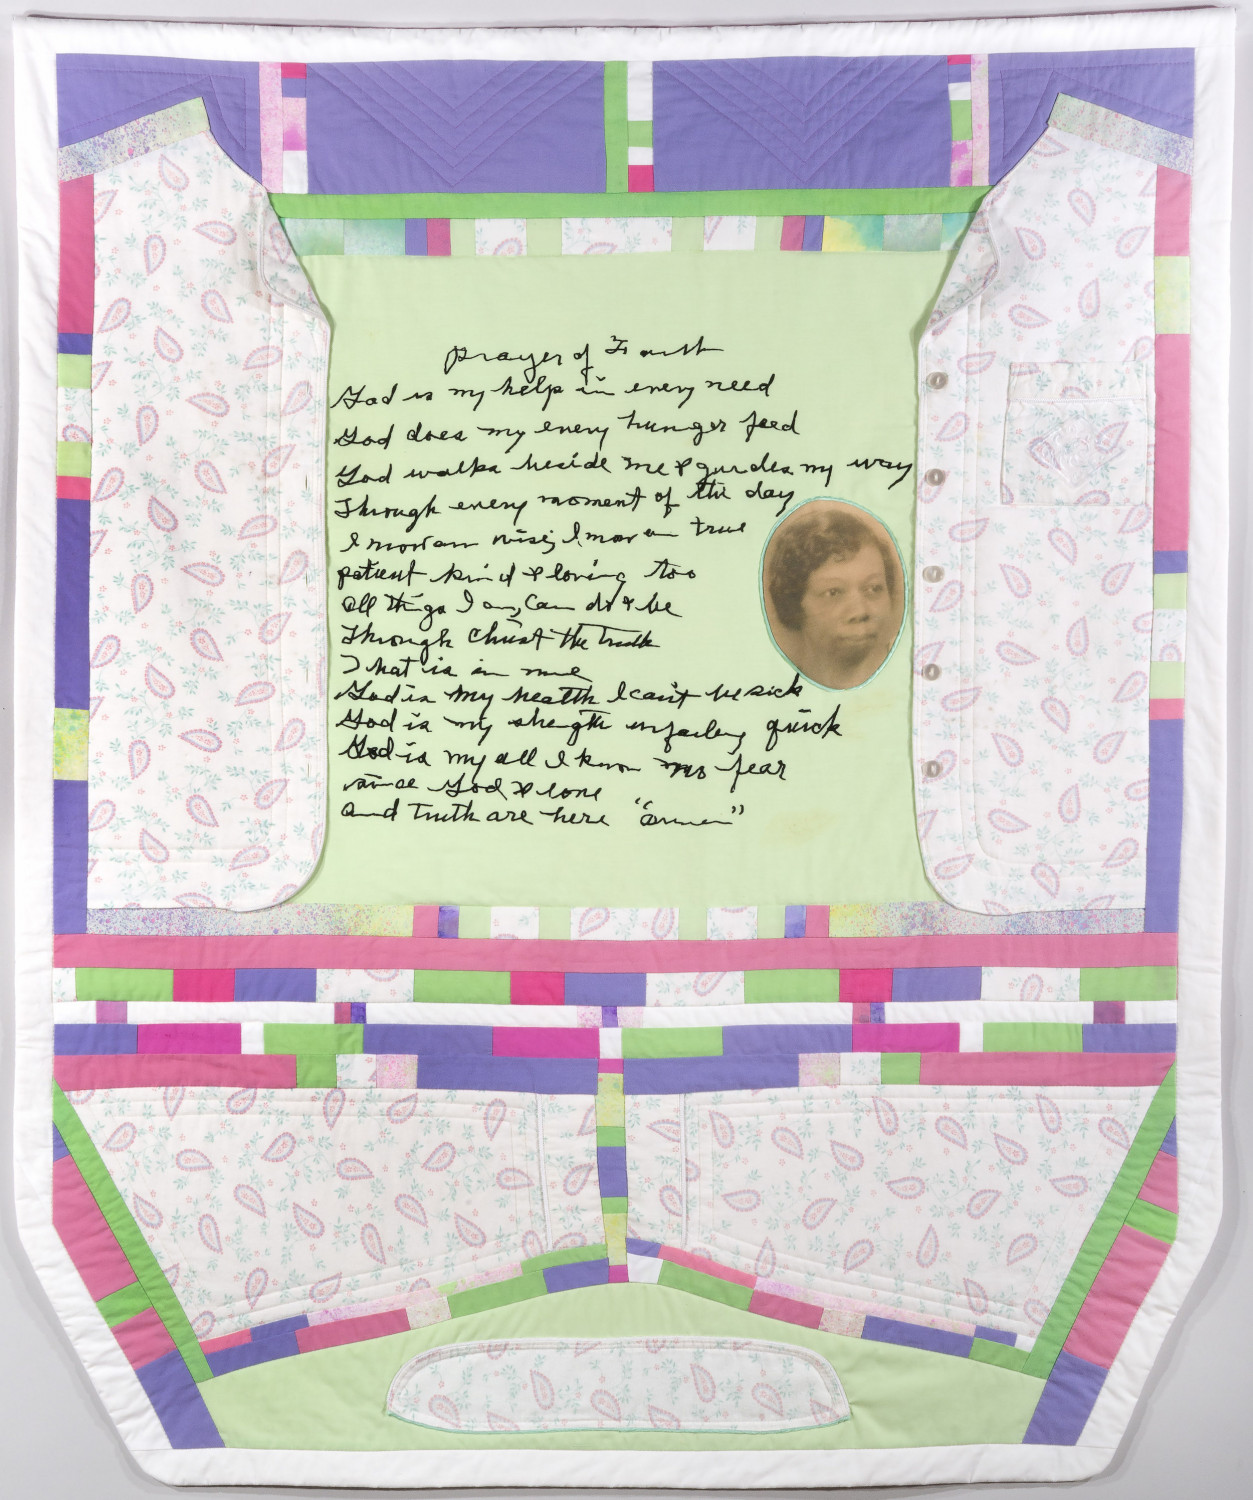 Prayer of Faith
God is my help in every need
God does my every hunger feed
God walks beside me & guides my way
Through every moment of the day
I now am wise, I now am true
patient kind & loving too
All things I am, Can do & be
Through Christ the truth
That is in me
God is my health I can't be sick
God is my strength unfailing quick
God is my all I know no fear
since God & love
and Truth are here "amen"